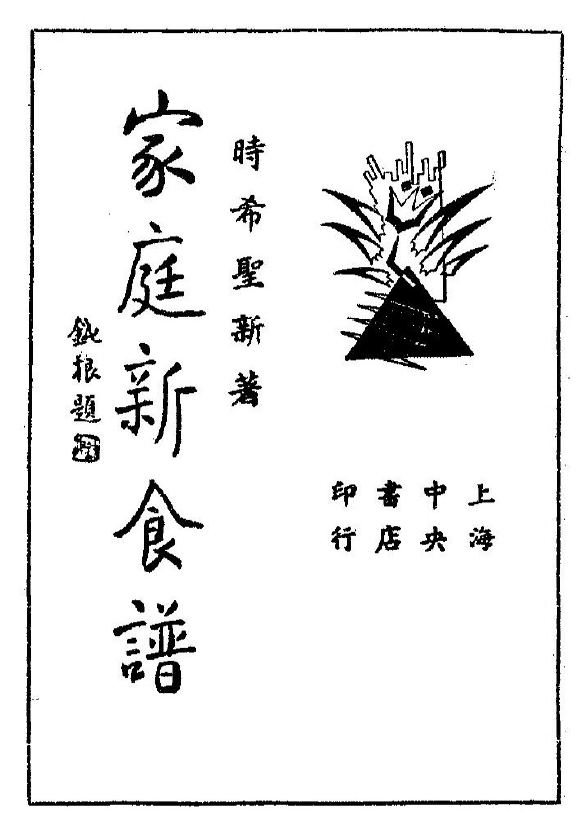 上海
中央
書店
印行
時希聖新著
家庭新食譜
鈍根題